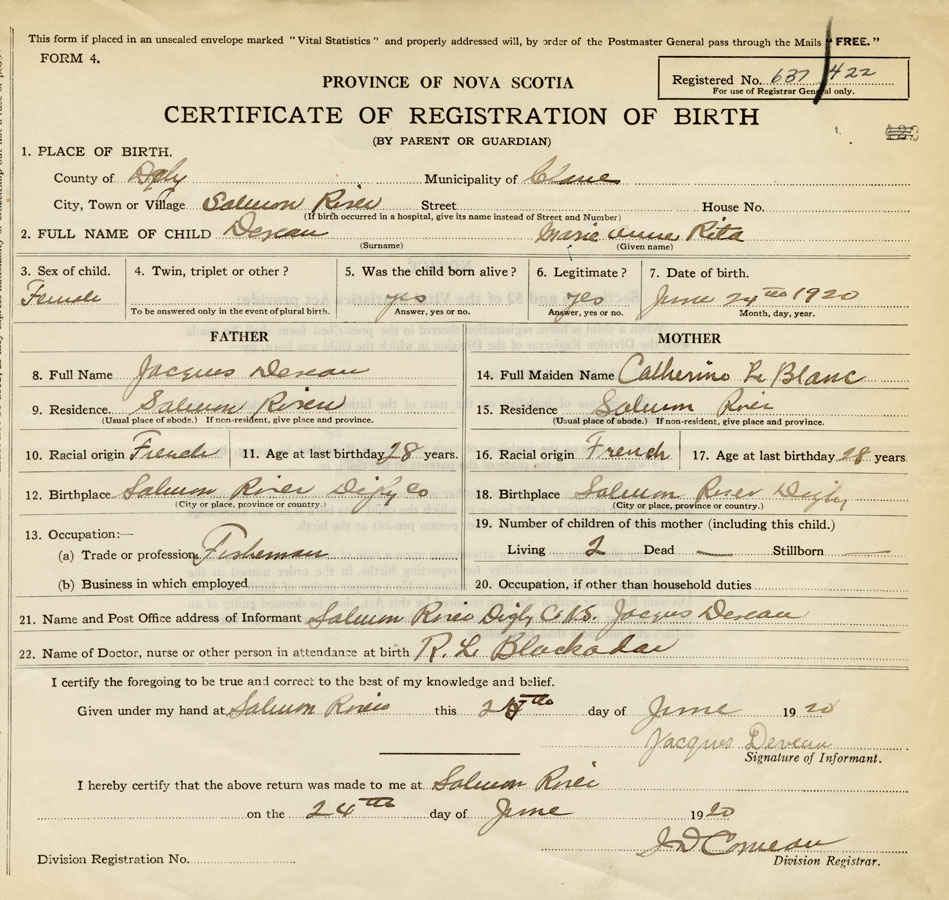 This form if placed in an unsealed envelope marked "Vital Statistics" and properly addressed will, by order of the Postmaster General pass through the Mails "FREE."
FORM 4.
Registered No. 637 422
For use of Registrar General only.
PROVINCE OF NOVA SCOTIA
CERTIFICATE OF REGISTRATION OF BIRTH
(BY PARENT OR GUARDIAN)
1. PLACE OF BIRTH.
County of Digby Municipality of Clare
City, Town or Village Salmon River Street House No.
(If birth occurred in a hospital, give its name instead of Street and Number)
2. FULL NAME OF CHILD Deveau Marie Anne Rita
(Surname) (Given name)
3. Sex of child. 4. Twin, triplet or other? 5. Was the child born alive? 6. Legitimate? 7. Date of birth.
Female yes yes June 24th 1920
To be answered only in the event of plural birth. Answer, yes or no. Answer, yes or no. Month, day, year.
FATHER MOTHER
8. Full Name Jacques Deveau 14. Full Maiden Name Catherine Le Blanc
9. Residence. Salmon River 15. Residence Salmon River
(Usual place of abode.) If non-resident, give place and province. (Usual place of abode.) If non-resident, give place and province.
10. Racial origin French 11. Age at last birthday 28 years. 16. Racial origin French 17. Age at last birthday 28 years.
12. Birthplace Salmon River Digby Co 18. Birthplace Salmon River Digby
(City or place, province or country.) (City or place, province or country.)
13. Occupation:— 19. Number of children of this mother (including this child.)
(a) Trade or profession. Fisherman Living 2 Dead — Stillborn —
(b) Business in which employed 20. Occupation, if other than household duties
21. Name and Post Office address of Informant Salmon River Digby C. N.S. Jacques Deveau
22. Name of Doctor, nurse or other person in attendance at birth R. L. Blackadar
I certify the foregoing to be true and correct to the best of my knowledge and belief.
Given under my hand at Salmon River this day of June 1920
Jacques Deveau
Signature of Informant.
I hereby certify that the above return was made to me at Salmon River
on the 24th day of June 1920
J D Comeau
Division Registration No. Division Registrar.